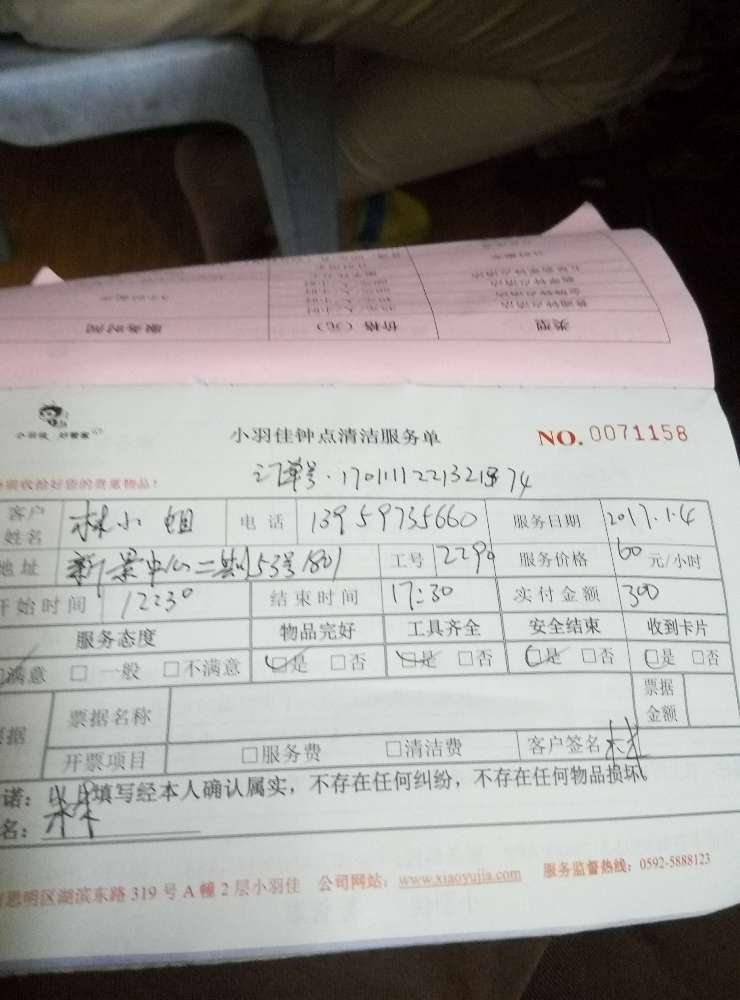 类型 价格（元） 服务时间
小羽佳 好管家
小羽佳钟点清洁服务单 NO. 0071158
收拾好您的贵重物品！
订单号.
客户姓名 林小姐 电话 13959735660 服务日期 2017.1.4
地址 新景中心二期53号1801 工号 2290 服务价格 60 元/小时
开始时间 12:30 结束时间 17:30 实付金额 300
服务态度 物品完好 工具齐全 安全结束 收到卡片
□满意 □一般 □不满意 □是 □否 □是 □否 □是 □否 □是 □否
票据 票据名称 票据金额
开票项目 □服务费 □清洁费 客户签名 林
诺： 填写经本人确认属实，不存在任何纠纷，不存在任何物品损坏
名： 林
思明区湖滨东路 319 号 A 幢 2 层小羽佳 公司网站：www.xiaoyujia.com 服务监督热线：0592-5888123